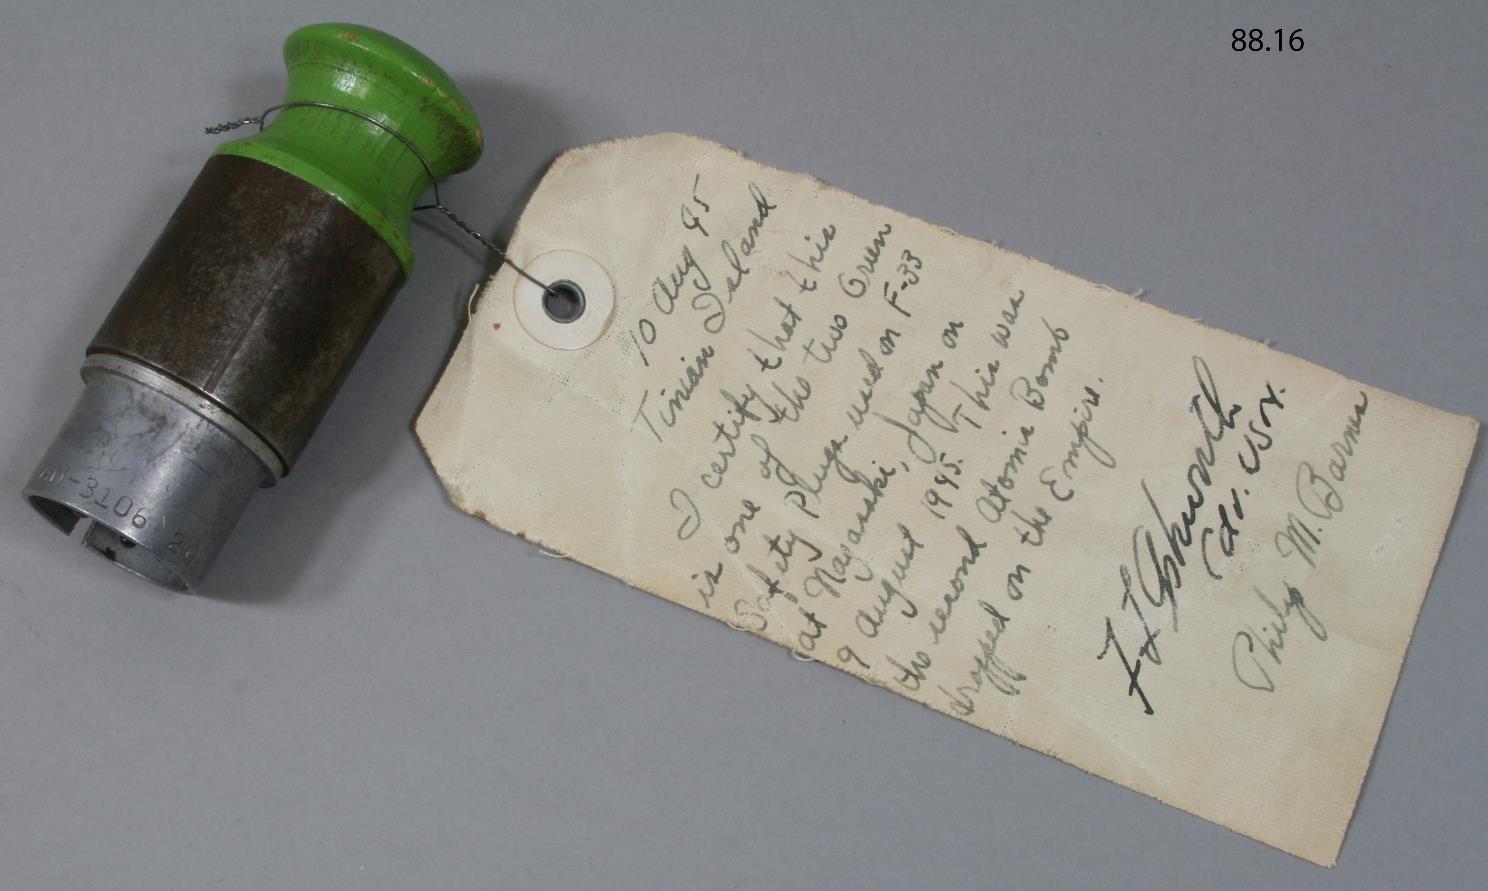 88.16
AN-3106 20
10 Aug 45
Tinian Island
I certify that this
is one of the two Green
Safety Plugs used on F-33
at Nagasaki, Japan on
9 August 1945. This was
the second Atomic Bomb
dropped on the Empire.
F L Ashworth
Cdr. USN.
Philip M. Barnes